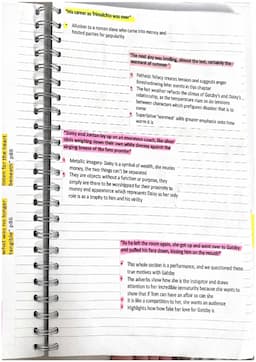 "his career as Trimalchio was over"
Allusion to a roman slave who came into money and
hosted parties for popularity
"The next day was broiling, almost the last, certainly the
warmest of summer"
Pathetic fallacy creates tension and suggests anger
foreshadowing later events in this chapter
The hot weather reflects the climax of Gatsby's and Daisy's
relationship, as the temperature rises so do tensions
between characters which prefigures disaster that is to
come
Superlative "warmest" adds greater emphasis onto how
warm it is
"Daisy and Jordan lay up on an enormous couch, like silver
idols weighing down their own white dresses against the
singing breeze of the fans promise"
Metallic imagery: Daisy is a symbol of wealth, she exudes
money, the two things can't be separated
They are objects without a function or purpose, they
simply are there to be worshipped for their proximity to
money and appearance which represents Daisy as her only
role is as a trophy to him and his virility
beneath" p85
what was no longer
tangible" p86
"As he left the room again, she got up and went over to Gatsby
and pulled his face down, kissing him on the mouth"
This whole section is a performance, and we questioned these
true motives with Gatsby
The adverbs show how she is the instigator and draws
attention to her incredible sensuality because she wants to
show that if Tom can have an affair so can she
It is like a competition to her, she wants an audience
Highlights how how fake her love for Gatsby is